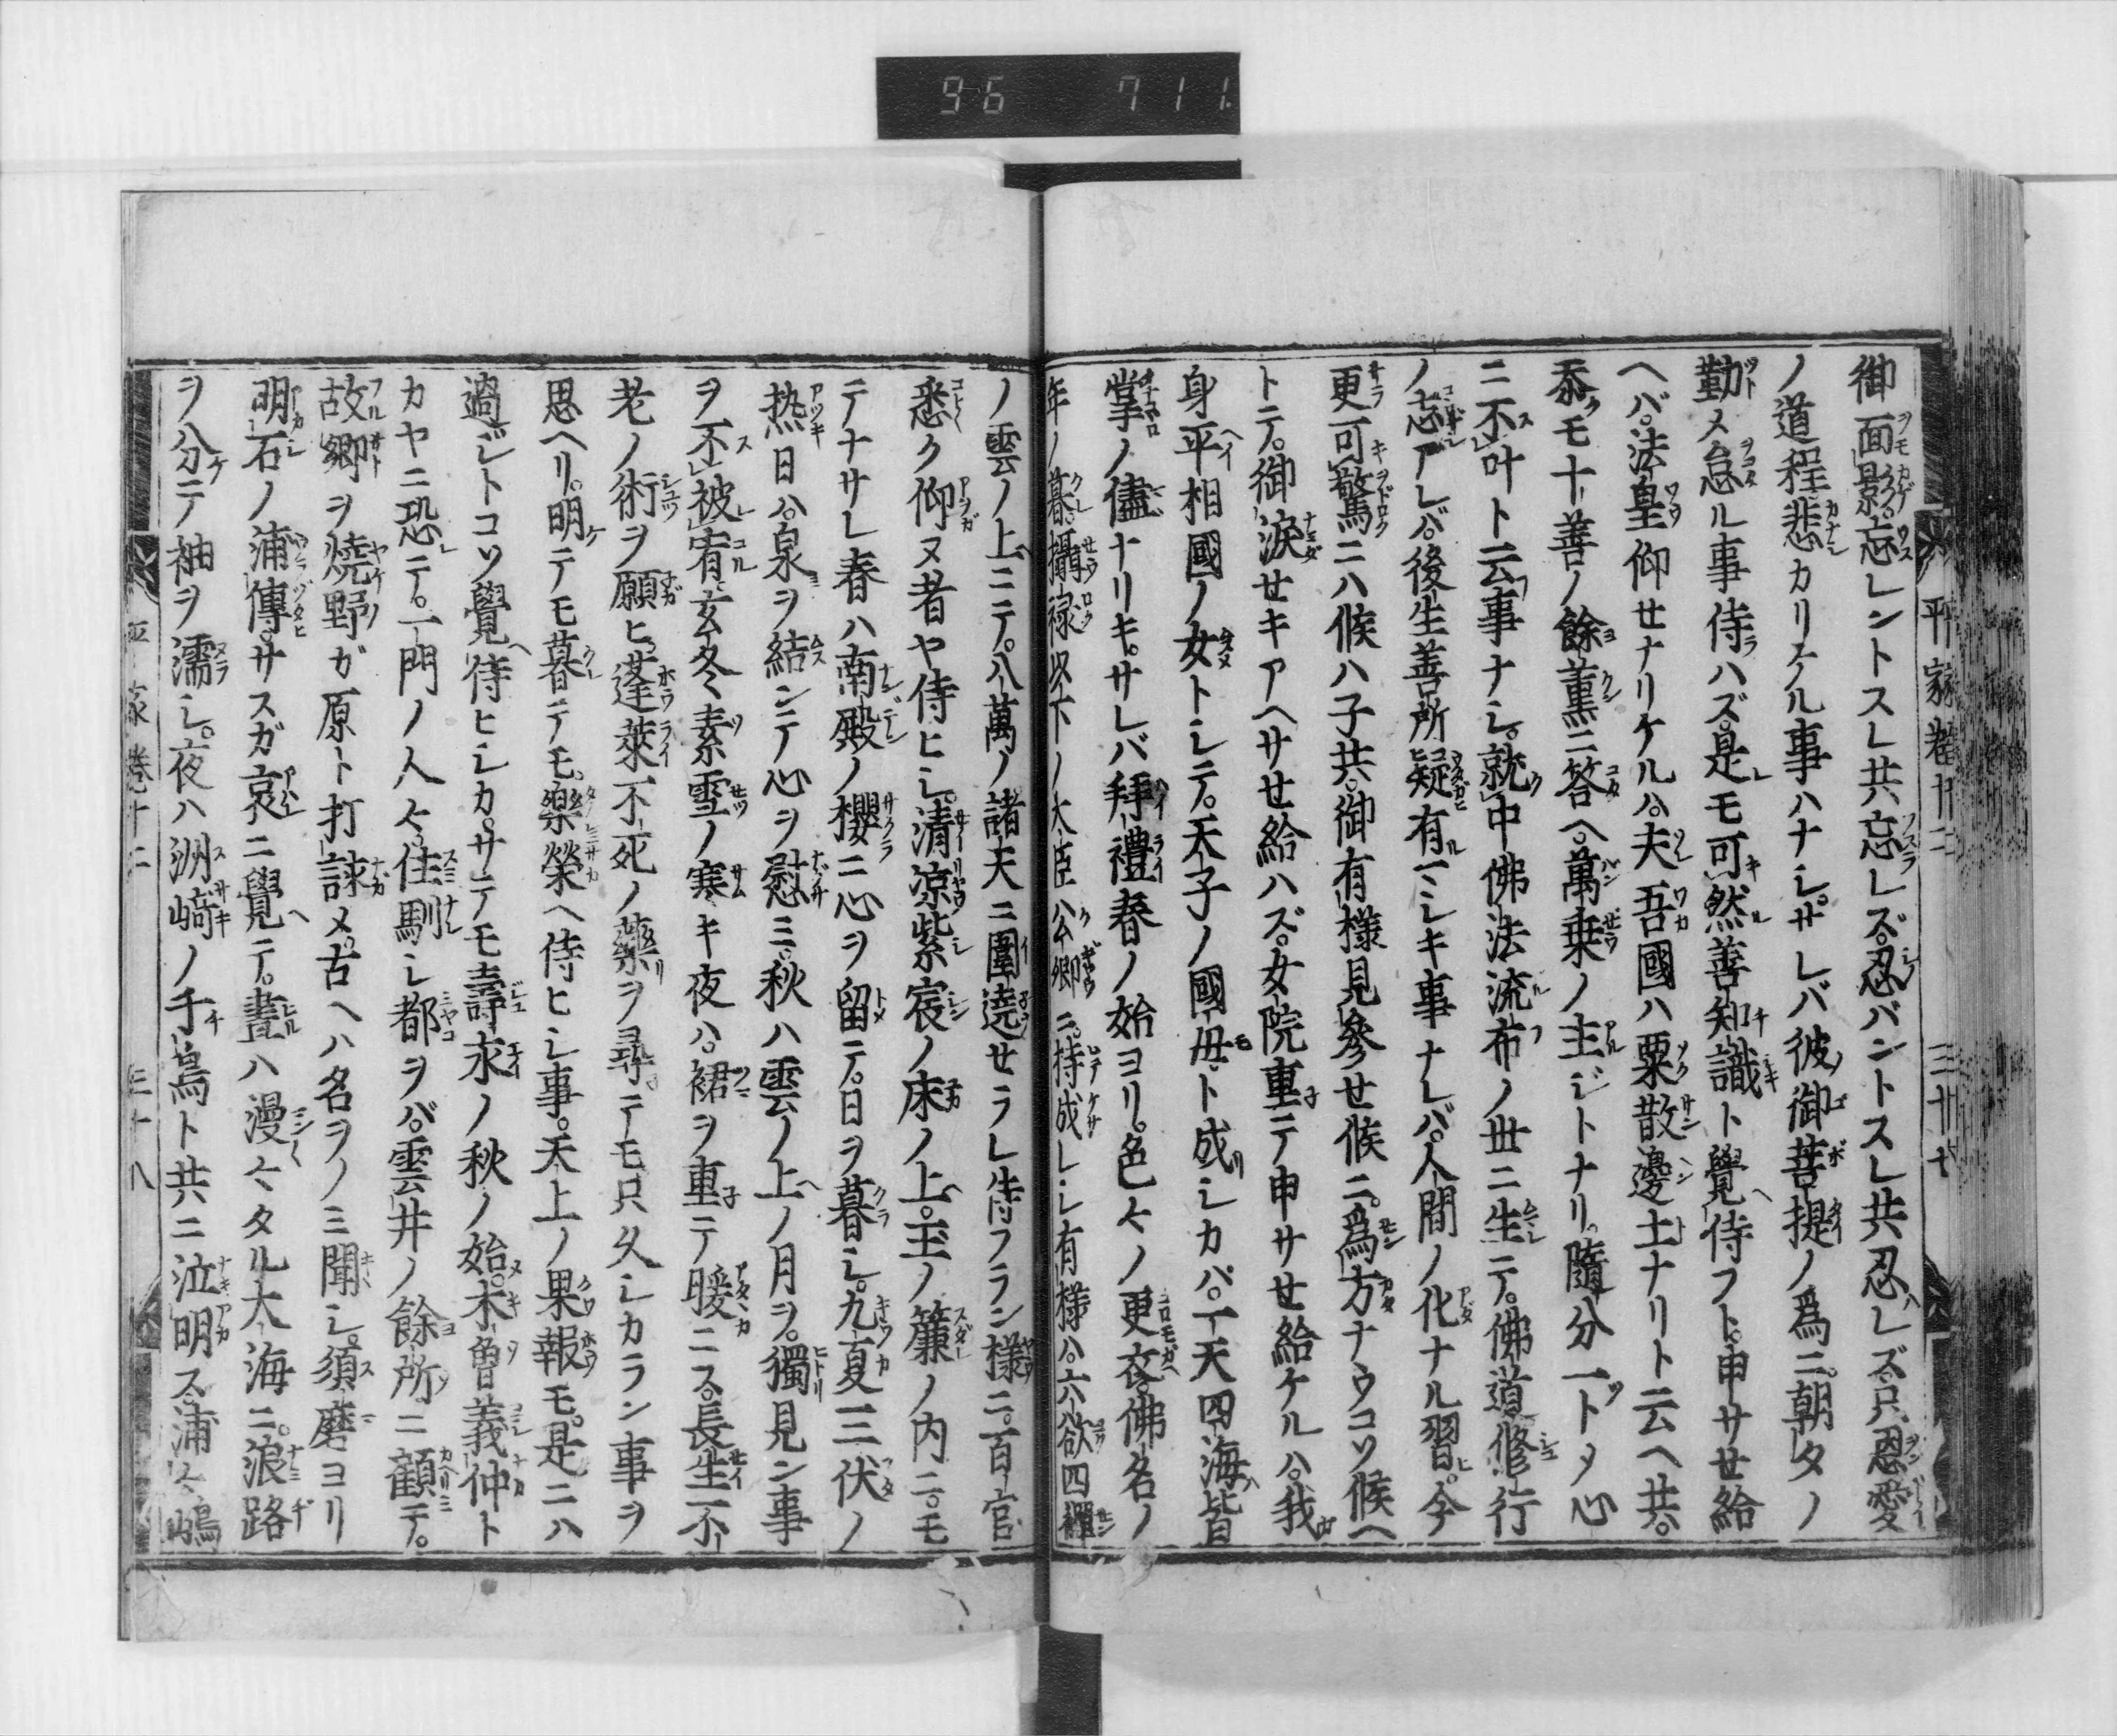 96 711
平家巻十二 三十七
御面影忘レントスレ共忘レズ。忍バントスレ共忍レズ。只恩愛
ノ道程悲カリケル事ハナシ。サレバ彼御菩提ノ爲ニ。朝タノ
勤メ怠ル事侍ハズ。是モ可然善知識ト覺侍フト。申サセ給
ヘバ。法皇仰セナリケルハ。夫吾國ハ粟散邊土ナリト云ヘ共。
忝モ十善ノ餘薫ニ答ヘ。萬乗ノ主ジトナリ。隨分一トメ心
ニ不叶ト云事ナシ。就中佛法流布ノ世ニ生テ。佛道修行
ノ志アレバ。後生善所疑有ミシキ事ナレバ。人間ノ化ナル習ヒ。今
更可驚ニハ候ハ子共。御有様見參セ候ニ。爲方ナウコソ候ヘ
トテ。御涙セキアヘサセ給ハズ。女院重テ申サセ給ケルハ。我
身平相國ノ女トシテ。天子ノ國母ト成シカバ。一天四海皆
掌ノ儘ナリキ。サレバ拜禮春ノ始ヨリ。色々ノ更衣。佛名ノ
年ノ暮。攝禄以下ノ大臣公卿ニ。持成レシ有様ハ。六欲四禪
ノ雲ノ上ニテ。八萬ノ諸天ニ圍遶セラレ侍フラン様ニ。百官
悉ク仰ヌ者ヤ侍ヒシ。清凉紫宸ノ床ノ上。玉ノ簾ノ内ニ。モ
テナサレ春ハ南殿ノ櫻ニ心ヲ留テ。日ヲ暮シ。九夏三伏ノ
熱日ハ。泉ヲ結ンテ心ヲ慰ミ。秋ハ雲ノ上ノ月ヲ。獨見ン事
ヲ不被宥。玄冬素雪ノ寒キ夜ハ。裙ヲ重テ暖ニス。長生不
老ノ術ヲ願ヒ。蓬萊不死ノ藥ヲ尋テモ只久シカラン事ヲ
思ヘリ。明テモ暮テモ。樂榮ヘ侍ヒシ事。天上ノ果報モ。是ニハ
過ジトコソ覺侍ヒシカ。サテモ壽永ノ秋ノ始。木曾義仲ト
カヤニ恐テ。一門ノ人々。住馴シ都ヲバ。雲井ノ餘所ニ顧テ。
故郷ヲ燒野ガ原ト打詠メ。古ヘハ名ヲノミ聞シ。須磨ヨリ
明石ノ浦傳。サスガ哀ニ覺ヘテ。晝ハ漫々タル大海ニ。浪路
ヲ分テ袖ヲ濡シ。夜ハ洲崎ノ千鳥ト共ニ泣明ス。浦々嶋
平家巻十二 三十八